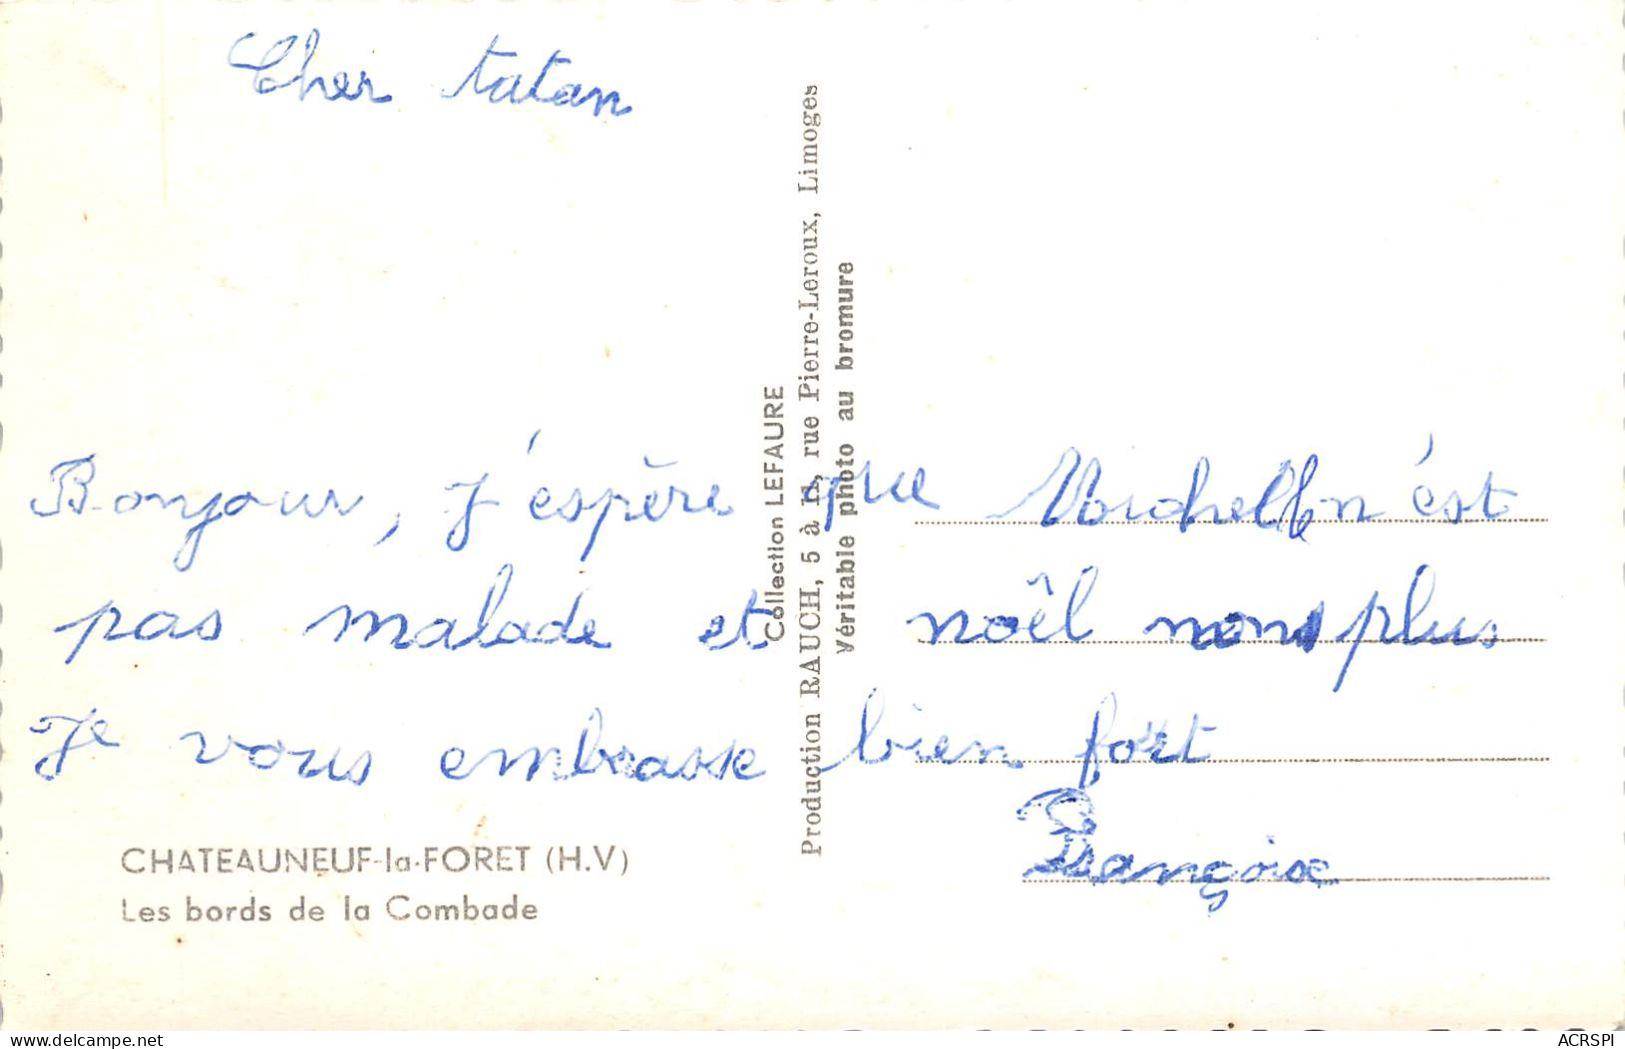 Cher tatan
Bonjour, j'espère que n'est
pas malade et noël non plus
Je vous embrasse bien fort
Françoise
CHATEAUNEUF-la-FORET (H.V)
Les bords de la Combade
Collection LEFAURE
Production RAUCH, 5 à 11, rue Pierre-Leroux, Limoges
Véritable photo au bromure
ACRSPI